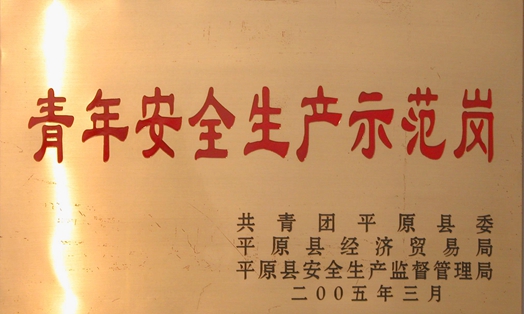 青年安全生产示范岗
共青团平原县委
平原县经济贸易局
平原县安全生产监督管理局
二00五年三月